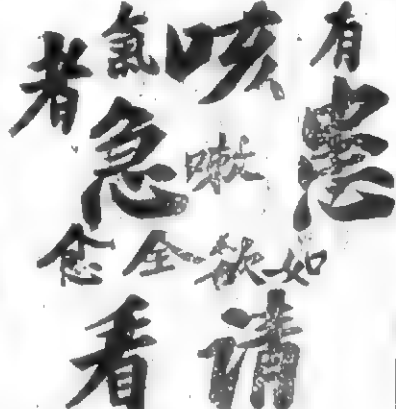 有患
咳嗽
氣急
者
如欲全愈
請看